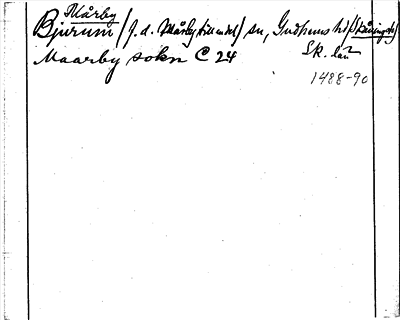 Mårby
Bjurum (f. d. Mårby sn, Gudhems hd (
Sk. län
Maarby sokn C 24
1488-90